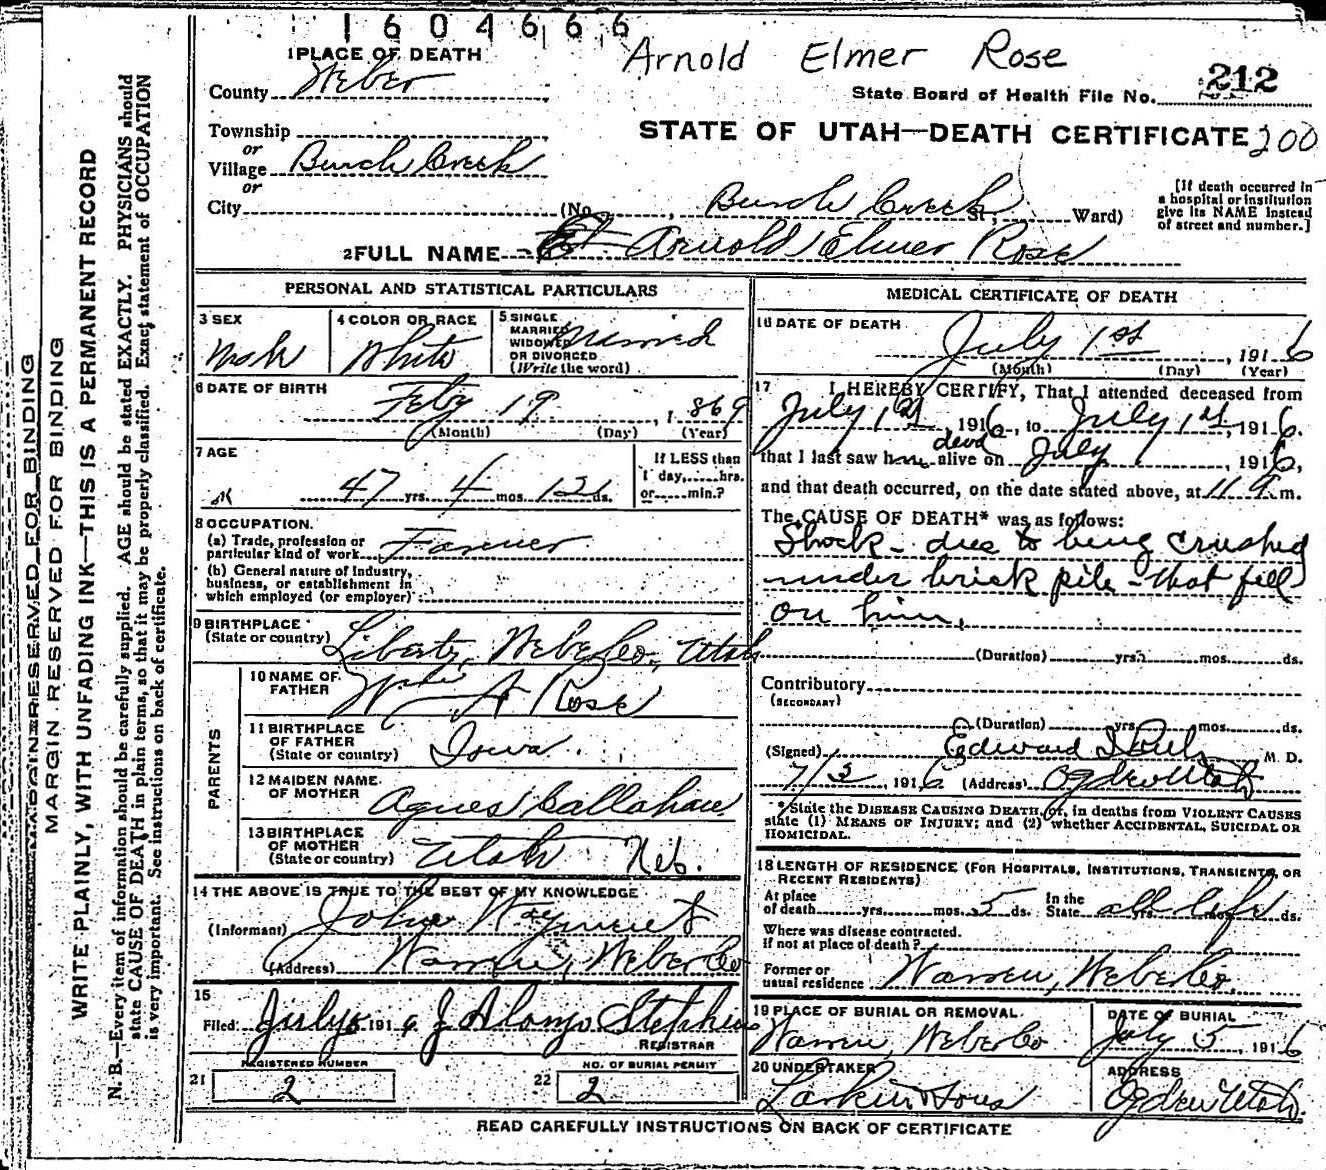 1604666
Arnold Elmer Rose
1 PLACE OF DEATH
County Weber
State Board of Health File No. 212
Township
or
Village Burch Creek
or
City
STATE OF UTAH—DEATH CERTIFICATE 200
(No. , Burch Creek St; Ward)
[If death occurred in
a hospital or institution
give its NAME instead
of street and number.]
2 FULL NAME Arnold Elmer Rose
PERSONAL AND STATISTICAL PARTICULARS
3 SEX
Male
4 COLOR OR RACE
White
5 SINGLE
MARRIED
WIDOWED
OR DIVORCED
(Write the word)
Married
6 DATE OF BIRTH
Feby 19, 1869
(Month) (Day) (Year)
7 AGE
47 yrs. 4 mos. 12 ds.
If LESS than
1 day, hrs.
or min.?
8 OCCUPATION.
(a) Trade, profession or
particular kind of work Farmer
(b) General nature of Industry,
business, or establishment in
which employed (or employer)
9 BIRTHPLACE
(State or country) Liberty, Weber Co., Utah
PARENTS
10 NAME OF
FATHER A Rose
11 BIRTHPLACE
OF FATHER
(State or country) Iowa
12 MAIDEN NAME
OF MOTHER Agnes Callahan
13 BIRTHPLACE
OF MOTHER
(State or country) Utah Neb.
14 THE ABOVE IS TRUE TO THE BEST OF MY KNOWLEDGE
(Informant) John
(Address) Warren, Weber Co
15
Filed July 191 6 J Alonzo Stephens
REGISTRAR
REGISTERED NUMBER
21 2
NO. OF BURIAL PERMIT
22 2
MEDICAL CERTIFICATE OF DEATH
16 DATE OF DEATH
July 1st, 1916
(Month) (Day) (Year)
17 I HEREBY CERTIFY, That I attended deceased from
July 1st, 1916, to July 1st, 1916.
that I last saw him dead alive on July, 1916,
and that death occurred, on the date stated above, at 11 a.m.
The CAUSE OF DEATH* was as follows:
Shock - due to being crushed
under brick pile - that fell
on him.
(Duration) yrs. mos. ds.
Contributory
(SECONDARY)
(Duration) yrs. mos. ds.
(Signed) Edward I M. D.
7/3, 1916 (Address) Ogden Utah
* State the DISEASE CAUSING DEATH, or, in deaths from VIOLENT CAUSES
state (1) MEANS OF INJURY; and (2) whether ACCIDENTAL, SUICIDAL OR
HOMICIDAL.
18 LENGTH OF RESIDENCE (FOR HOSPITALS, INSTITUTIONS, TRANSIENTS, OR
RECENT RESIDENTS)
At place
of death yrs. mos. 5 ds.
In the
State all life yrs. mos. ds.
Where was disease contracted.
if not at place of death?
Former or
usual residence Warren, Weber Co.
19 PLACE OF BURIAL OR REMOVAL.
Warren, Weber Co
DATE OF BURIAL
July 5, 1916
20 UNDERTAKER
Larkin & Sons
ADDRESS
Ogden Utah.
READ CAREFULLY INSTRUCTIONS ON BACK OF CERTIFICATE
MARGIN RESERVED FOR BINDING
MARGIN RESERVED FOR BINDING
WRITE PLAINLY, WITH UNFADING INK—THIS IS A PERMANENT RECORD
N. B.—Every item of information should be carefully supplied. AGE should be stated EXACTLY. PHYSICIANS should
state CAUSE OF DEATH in plain terms, so that it may be properly classified. Exact statement of OCCUPATION
is very important. See instructions on back of certificate.